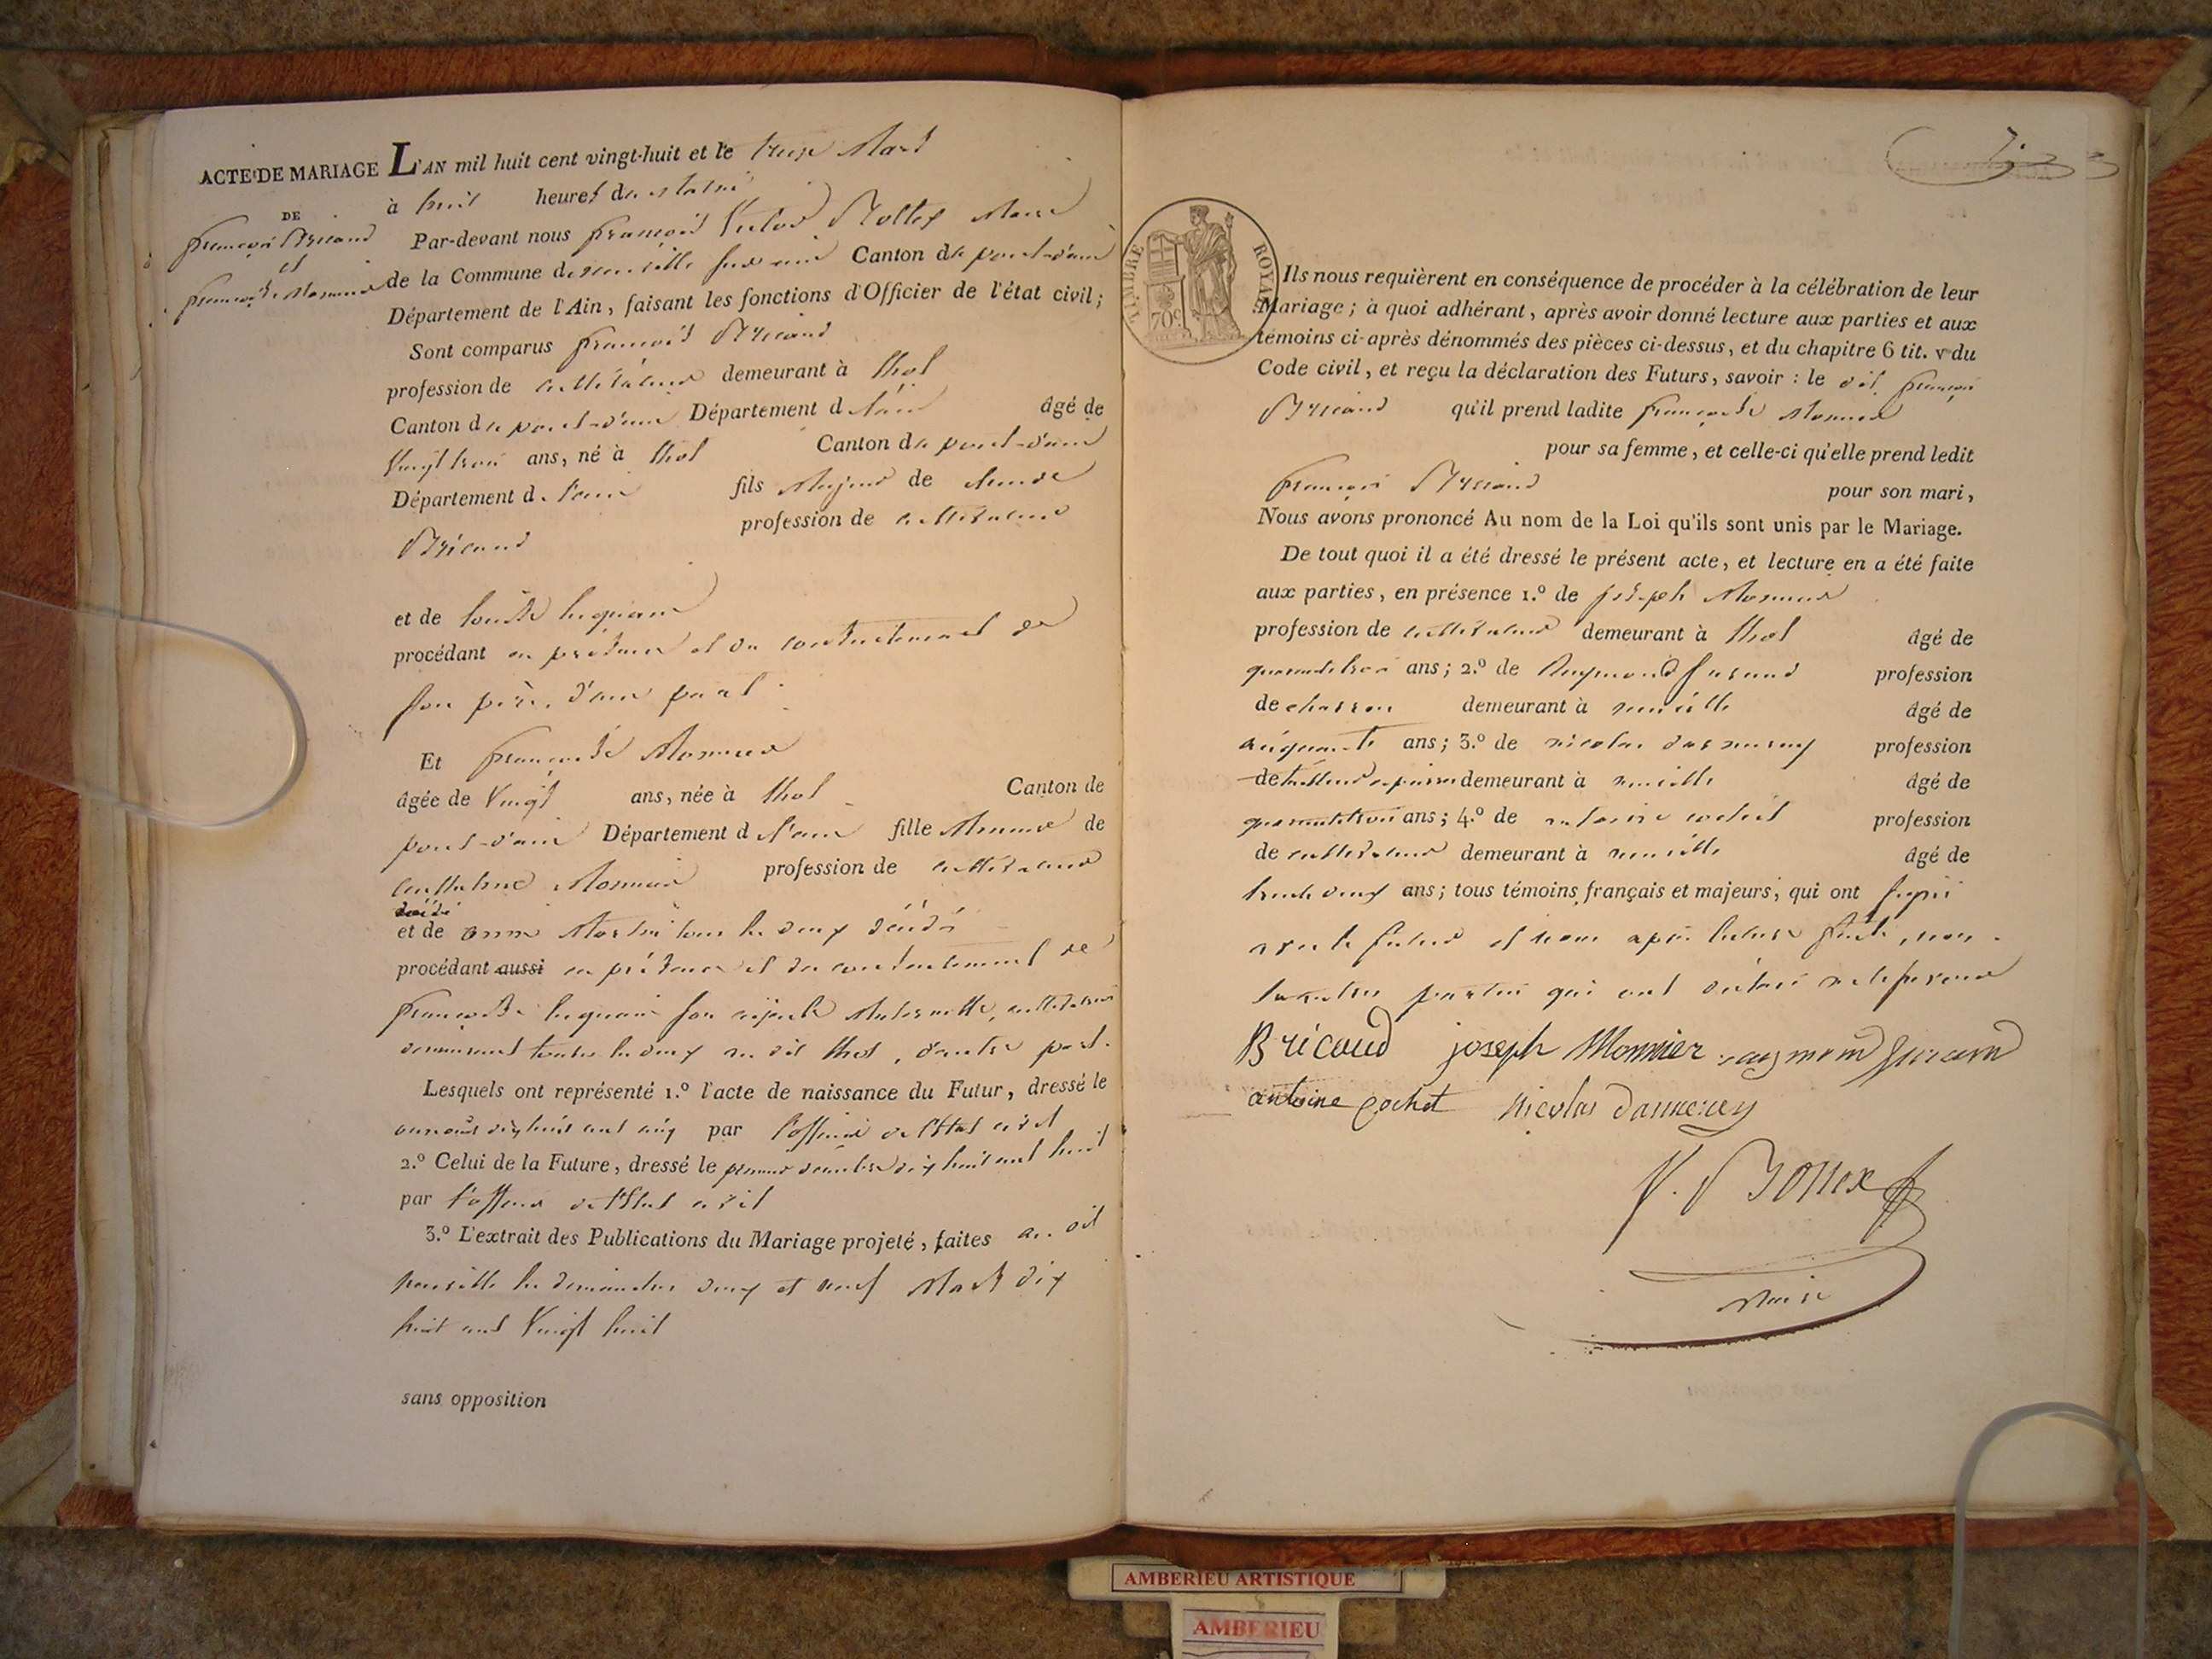 ACTE DE MARIAGE
DE
françois Bricaud
et
françoise Monnier
L'AN mil huit cent vingt-huit et le treize Mars
à huit heures du Matin
Par-devant nous françois Victor Maire
de la Commune de neuville sur ain Canton de pont-d'ain
Département de l'Ain, faisant les fonctions d'Officier de l'état civil;
Sont comparus françois Bricaud
profession de cultivateur demeurant à thol
Canton de pont-d'ain Département d l'ain âgé de
Vingt trois ans, né à thol Canton de pont-d'ain
Département d l'ain fils Majeur de claude
Bricaud profession de cultivateur
et de louise
procédant en présence et du consentement de
son père, d'une part.
Et françoise Monnier
âgée de Vingt ans, née à thol Canton de
pont-d'ain Département d l'ain fille Mineure de
Monnier profession de cultivateur
décédé
et de anne Martin tous les deux décédés
procédant aussi en présence et du consentement de
françoise son ayeule Maternelle, cultivatrice
demeurant toutes les deux au dit thol, d'autre part.
Lesquels ont représenté 1.º l'acte de naissance du Futur, dressé le
dix huit cent cinq par l'officier de l'Etat civil
2.º Celui de la Future, dressé le premier décembre dix huit cent huit
par l'officier de l'Etat civil
3.º L'extrait des Publications du Mariage projeté, faites au dit
neuville les dimanches deux et neuf Mars dix
huit cent Vingt huit
sans opposition
TIMBRE ROYAL
70c
Ils nous requièrent en conséquence de procéder à la célébration de leur
Mariage; à quoi adhérant, après avoir donné lecture aux parties et aux
témoins ci-après dénommés des pièces ci-dessus, et du chapitre 6 tit. v du
Code civil, et reçu la déclaration des Futurs, savoir : le dit françois
Bricaud qu'il prend ladite françoise Monnier
pour sa femme, et celle-ci qu'elle prend ledit
françois Bricaud pour son mari,
Nous avons prononcé Au nom de la Loi qu'ils sont unis par le Mariage.
De tout quoi il a été dressé le présent acte, et lecture en a été faite
aux parties, en présence 1.º de joseph Monnier
profession de cultivateur demeurant à thol âgé de
quarante trois ans; 2.º de Raymond profession
de charron demeurant à neuville âgé de
cinquante ans; 3.º de nicolas profession
de tailleur de pierre demeurant à neuville âgé de
quarante trois ans; 4.º de antoine cochet profession
de cultivateur demeurant à neuville âgé de
trente deux ans; tous témoins français et majeurs, qui ont signé
avec le futur et nous après lecture faite, non
les autres parties qui ont déclaré ne le savoir
Bricaud joseph Monnier raymond
antoine cochet Nicolas
V.
Maire
AMBERIEU ARTISTIQUE
AMBERIEU